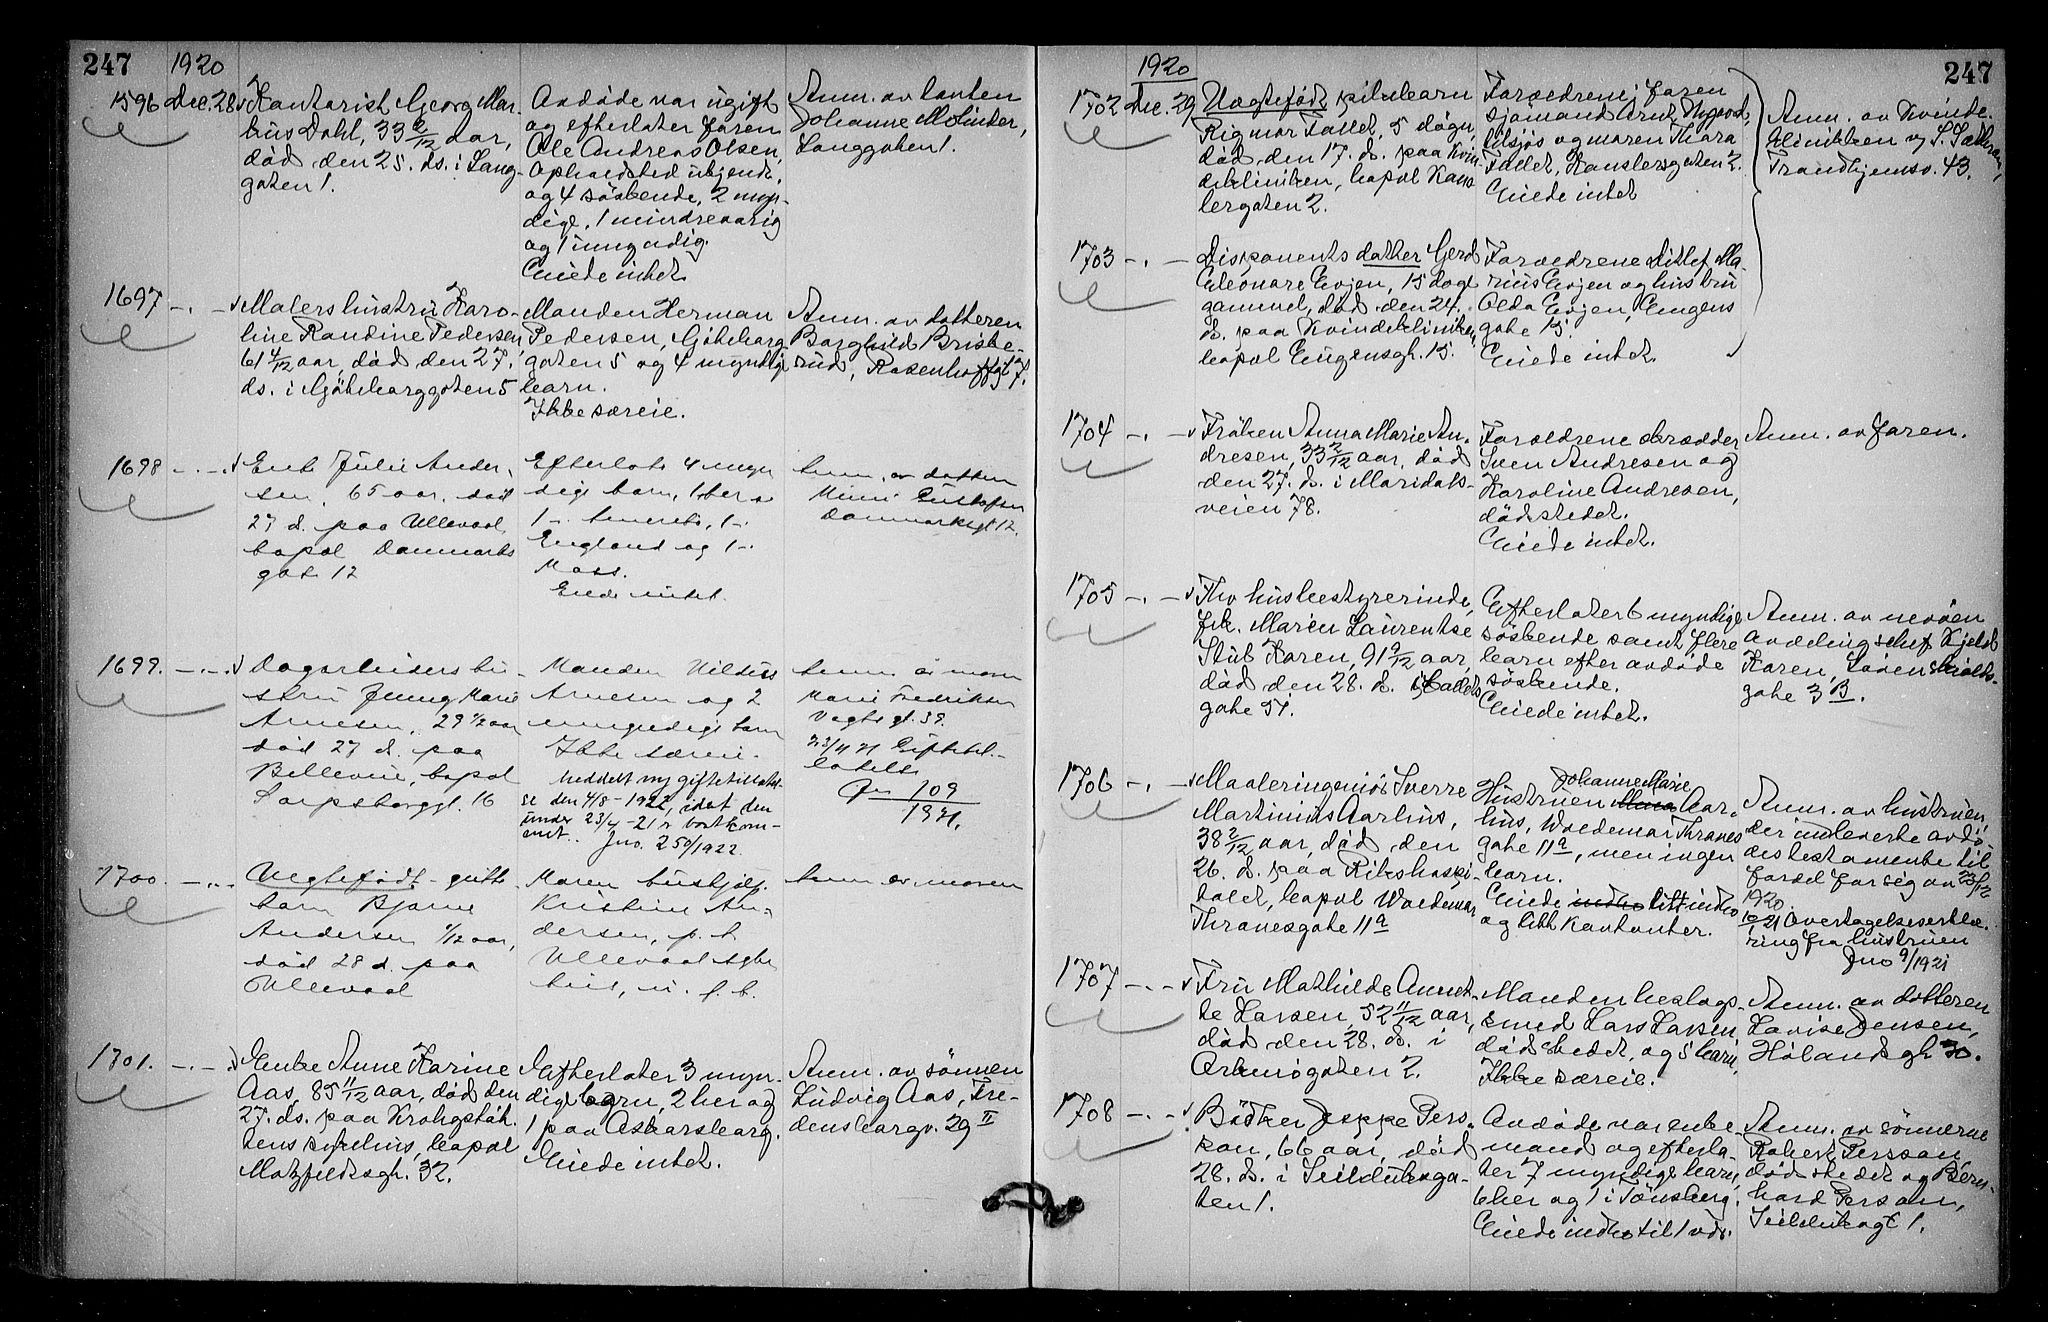 247 1920
1596 Dec. 28 Kontorist Georg Mar-
kus Dahl, 33 2/12 aar,
död den 25. ds. i Lang-
gaten 1.
Avdöde var ugift
og efterlater faren
Ole Andreas Olsen,
opholdsted ukjendt,
og 4 söskende, 2 myn-
dige, 1 mindreaarig
og 1 umyndig.
Eiede intet.
Anm. av tanten
Johanne Molinder,
Langgaten 1.
1697 -.- Malers hustru Karo-
line Randine Pedersen
61 4/12 aar, död den 27.
ds. i Göteborggaten 5
Manden Herman
Pedersen, Göteborg-
gaten 5 og 4 myndige
barn.
Ikke særeie.
Anm. av datteren
Borghild Briske-
rud, Rosenhoffgt 7.
1698 -.- Enke Julie Ander-
sen, 65 aar, död
27 d. paa Ullevaal,
bopæl Danmarks
gat. 12
Efterlot 4 myn
dige barn, 1 her
1 -. Amerika, 1 -.
England og 1 -.
Moss.
Eiede intet.
Anm. av datteren
Mimi Gustafsen
Danmarksgt 12.
1699. -.- Dagarbeiders hu-
stru Jenny Marie
Arnesen, 29 1/2 aar
död 27 d. paa
Bellevue, bopæl
Sarpsborggt. 16
Manden Nildus
Arnesen og 2
umyndige barn
Ikke særeie.
Meddelt ny giftetillatel-
se den 4/8-1922, idet den
under 23/4-21 er bortkom-
met. Jno. 250/1922.
Anm. av mor
Marie Fredriksen
Vogts gt. 39.
23/4 21 Giftetil-
latelse
Jno 109
1921.
1700. -.- Uegtefödt gutte
barn Bjarne
Andersen 1/12 aar,
död 28 d. paa
Ullevaal
Moren hushjelp.
Kristine An-
dersen, p. t.
Ullevaal syke
hus, u. f. b.
Anm. av moren
1701. -.- Enke Anne Karine
Aas, 85 11/12 aar, död den
27. ds. paa Krohgstöt-
tens sykehus, bopæl
Motzfeldtsgt. 32.
Efterlater 3 myn-
dige barn, 2 her og
1 paa Askersborg.
Eiede intet.
Anm. av sönnen
Ludvig Aas, Fre-
densborgv. 29 II
1920 247
1702 Dec. 29 Uegtefödt pikebarn
Rigmor Tallet, 5 dögn,
död den 17. ds. paa Kvin-
deklinikken, bopæl Kans
lergaten 2.
Forældrene: faren
sjömand Arnt Nygaard,
tilsjös og moren Thora
Tallet, Kanslergaten 2.
Eiede intet
Anm. av Kvinde-
klinikken v/ S. Sæthran,
Trondhjemsv. 43.
1703 -.- Disponents datter Gerd
Eleonore Evjen, 15 dage
gammel, död den 24.
ds. paa Kvindeklinikken,
bopæl Eugensgt. 15.
Forældrene Ditlef Ma-
rius Evjen og hustru
Olda Evjen, Eugens
gate 15.
Eiede intet.
1704 -.- Fröken Anna Marie An-
dresen, 33 2/12 aar, död
den 27. ds. i Maridals-
veien 78.
Forældrene skrædder
Sven Andresen og
Karoline Andresen,
dödsstedet.
Eiede intet.
Anm. av faren.
1705 -.- Fhv husbestyrerinde,
frk. Maren Laurentse
Stub Koren, 91 9/12 aar,
död den 28. ds. i Calles
gate 51.
Efterlater 6 myndige
söskende samt flere
barn efter avdöde
söskende.
Eiede intet.
Anm. av nevöen
avdelingschef Kjeld
Koren, Sövren Skiolds-
gate 3 B.
1706 -.- Maaleringeniör Sverre
Martinius Aarhus,
38 2/12 aar, död den
26. ds. paa Rikshospi-
talet, bopæl Woldemar
Thranesgate 11a
Johanne Marie
Hustruen Aar-
hus, Woldemar Thranes
gate 11a, men ingen
barn.
Eiede indbo litt indbo
og litt kontanter.
Anm. av hustruen,
der indleverte avdö-
des testamente til
fordel for sig av
1920.
Overtagelseserklæ-
ring fra hustruen
Jno 9/1921
1707 -.- Fru Mathilde Annet-
te Larsen, 52 11/12 aar,
död den 28. ds. i
Arkusgaten 2.
Manden beslags-
smed Lars Larsen,
dödsstedet, og 5 barn.
Ikke særeie.
Anm. av datteren
Lovise Jensen,
Hølandsgt 30.
1708 -.- Bödker Jeppe Pers-
son, 66 aar, död
28. ds. i Seilduksga-
ten 1.
Avdöde var enke-
mand og efterla-
ter 7 myndige barn,
6 her og 1 i Tönsberg.
Eiede indbo til 1 vds.
Anm. av sönnerne
Robert Persson,
dödsstedet og Bern-
hard Persson,
Seilduksgt 1.